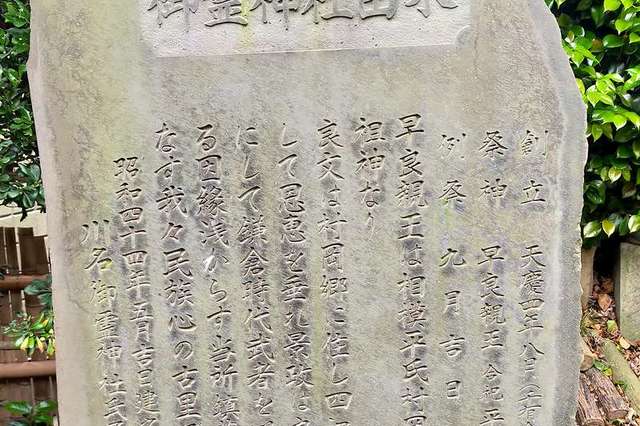 御霊神社由来
創立 天慶四年八日(
祭神 早良親王 合祀
例祭 九月吉日
早良親王は相模平氏村岡
祖神なり
良文は村岡郷に住し四
して恩恵を垂れ景政は
にして鎌倉時代武者を
る因縁浅からす当所鎮
なす我々民族心の古里
昭和四十四年五月吉日建
川名御霊神社氏